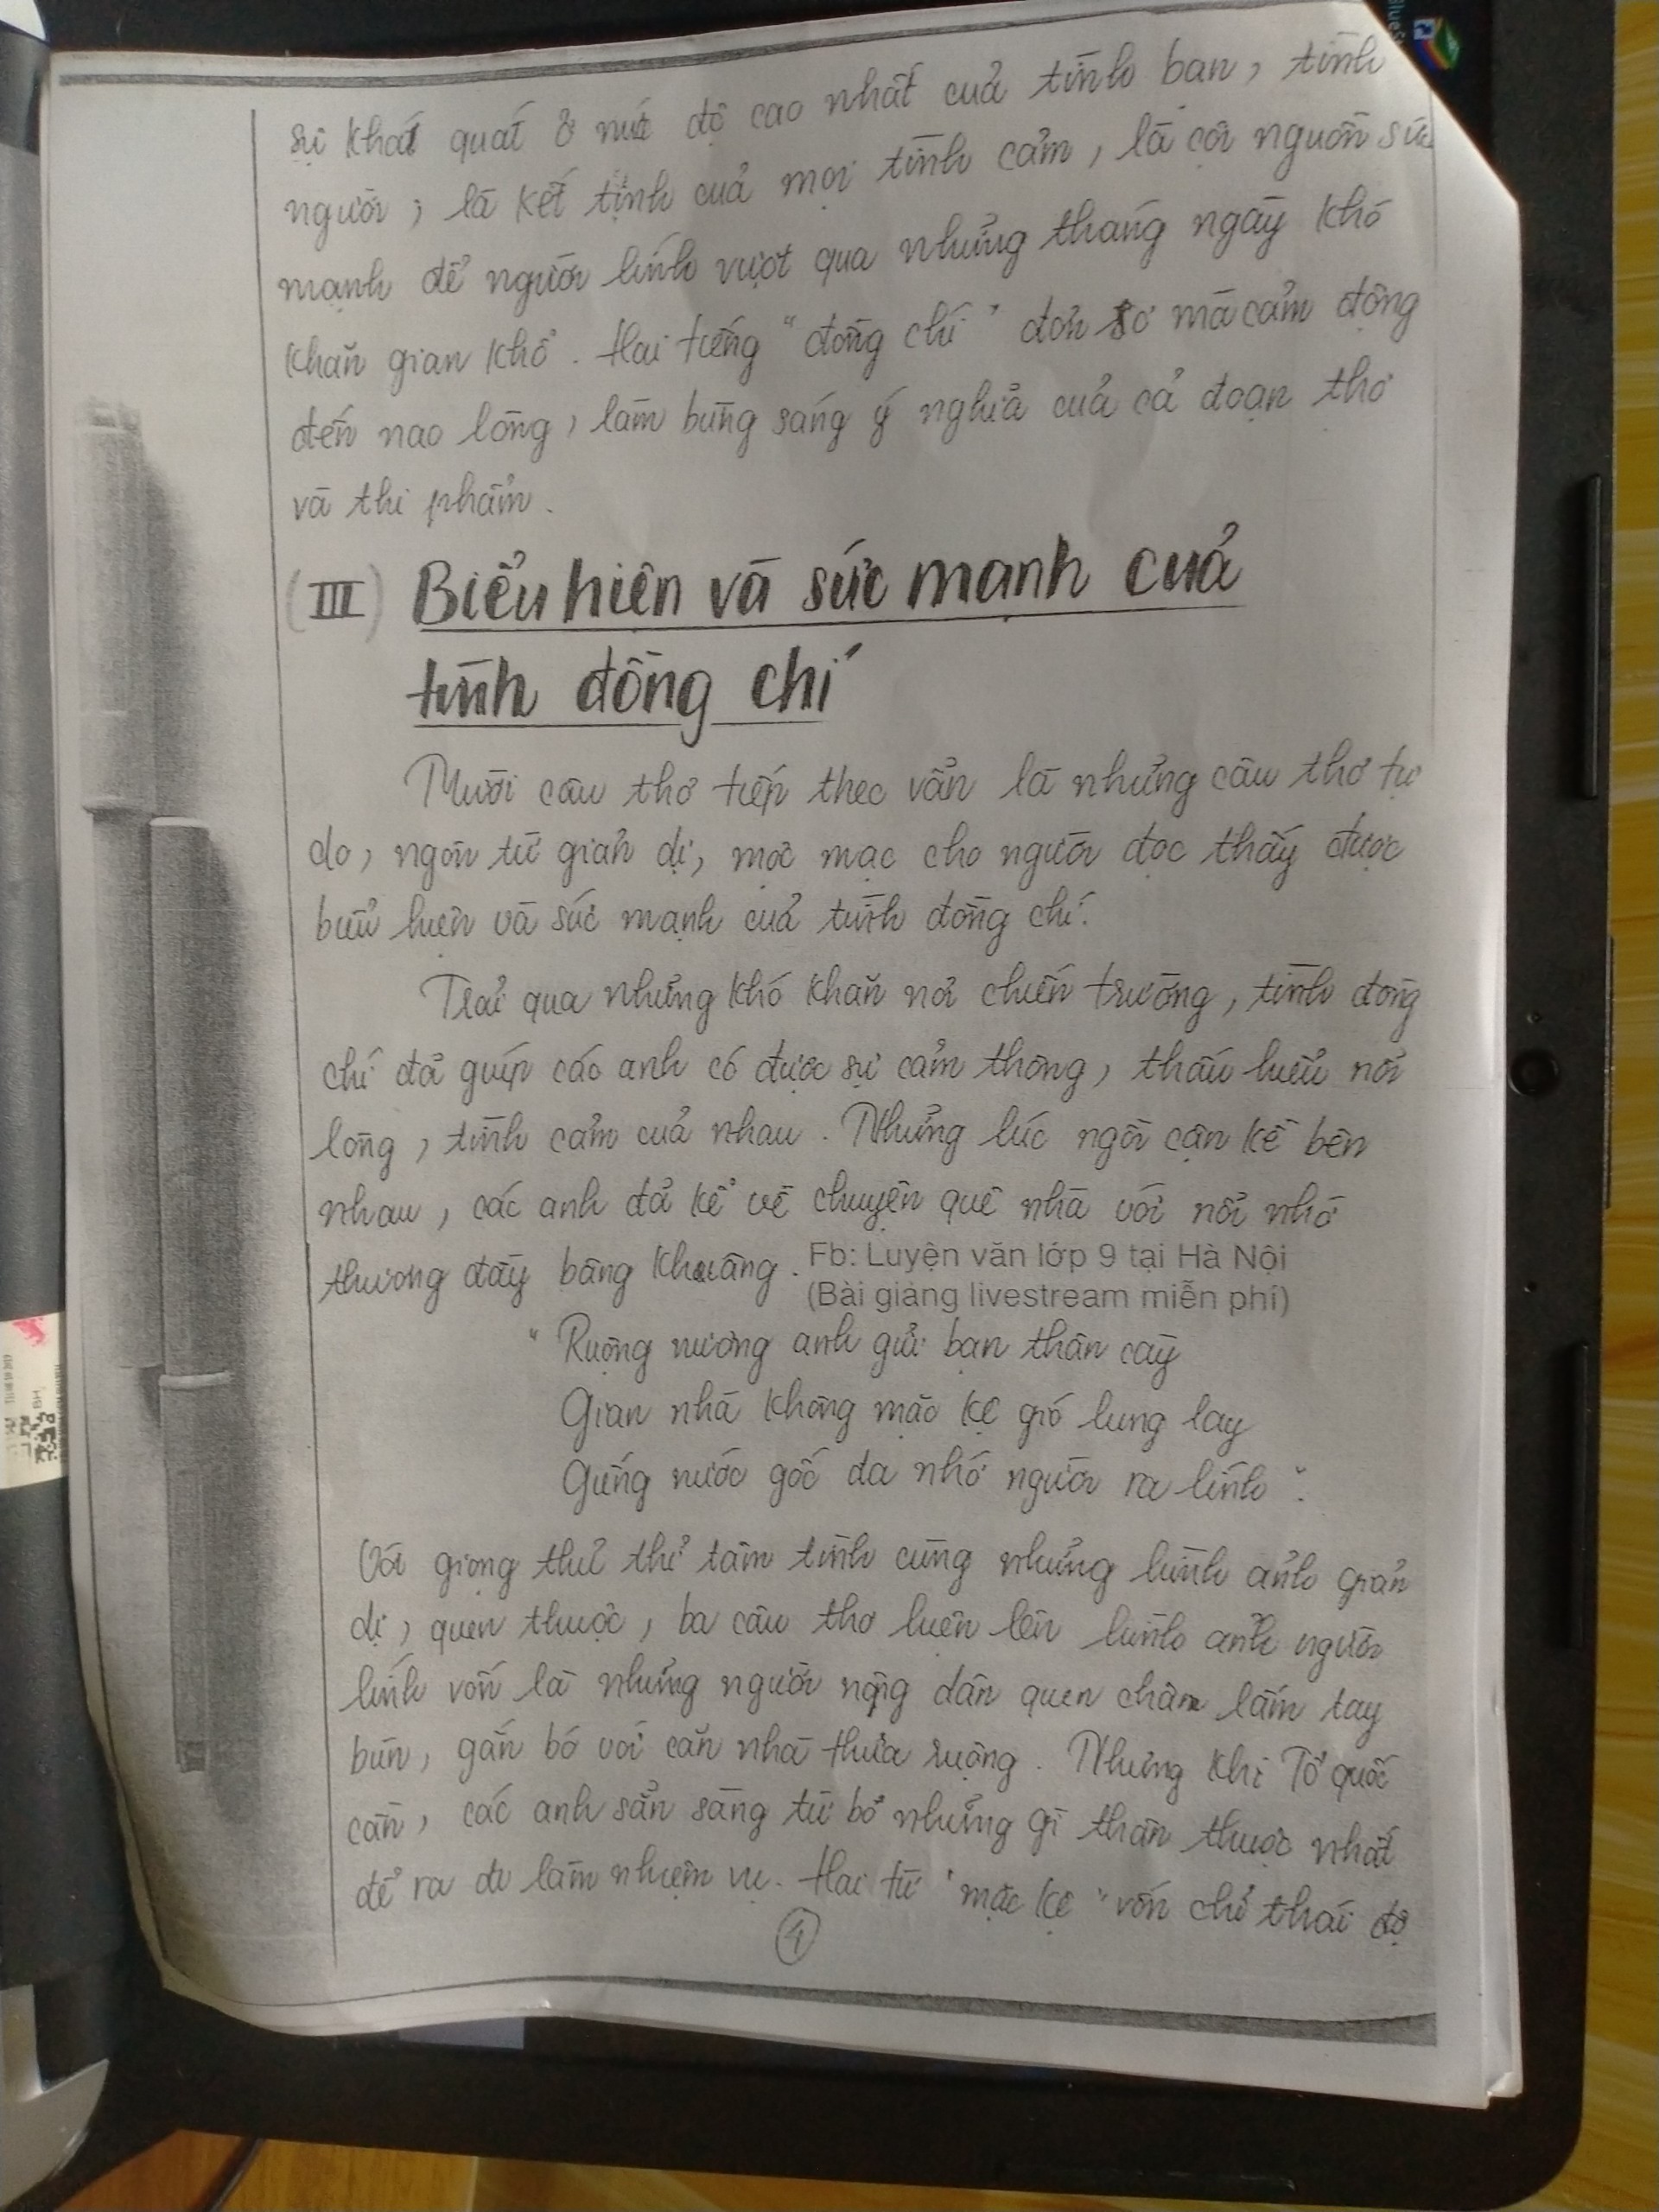 sự khái quát ở mức độ cao nhất của tình bạn, tình
người, là kết tinh của mọi tình cảm, là cội nguồn sức
mạnh để người lính vượt qua những tháng ngày khó
khăn gian khổ. Hai tiếng "đồng chí" đơn sơ mà cảm động
đến nao lòng, làm bừng sáng ý nghĩa của cả đoạn thơ
và thi phẩm.
(III) Biểu hiện và sức mạnh của
tình đồng chí
Mười câu thơ tiếp theo vẫn là những câu thơ tự
do, ngôn từ giản dị, mộc mạc cho người đọc thấy được
biểu hiện và sức mạnh của tình đồng chí.
Trải qua những khó khăn nơi chiến trường, tình đồng
chí đã giúp các anh có được sự cảm thông, thấu hiểu nỗi
lòng, tình cảm của nhau. Những lúc ngồi cận kề bên
nhau, các anh đã kể về chuyện quê nhà với nỗi nhớ
thương đầy bâng khuâng.
Fb: Luyện văn lớp 9 tại Hà Nội
(Bài giảng livestream miễn phí)
"Ruộng nương anh gửi bạn thân cày
Gian nhà không mặc kệ gió lung lay
Giếng nước gốc đa nhớ người ra lính".
Với giọng thủ thỉ tâm tình cùng những hình ảnh giản
dị, quen thuộc, ba câu thơ hiện lên hình ảnh người
lính vốn là những người nông dân quen chân lấm tay
bùn, gắn bó với căn nhà thửa ruộng. Nhưng khi Tổ quốc
cần, các anh sẵn sàng từ bỏ những gì thân thuộc nhất
để ra đi làm nhiệm vụ. Hai từ "mặc kệ" vốn chỉ thái độ
4